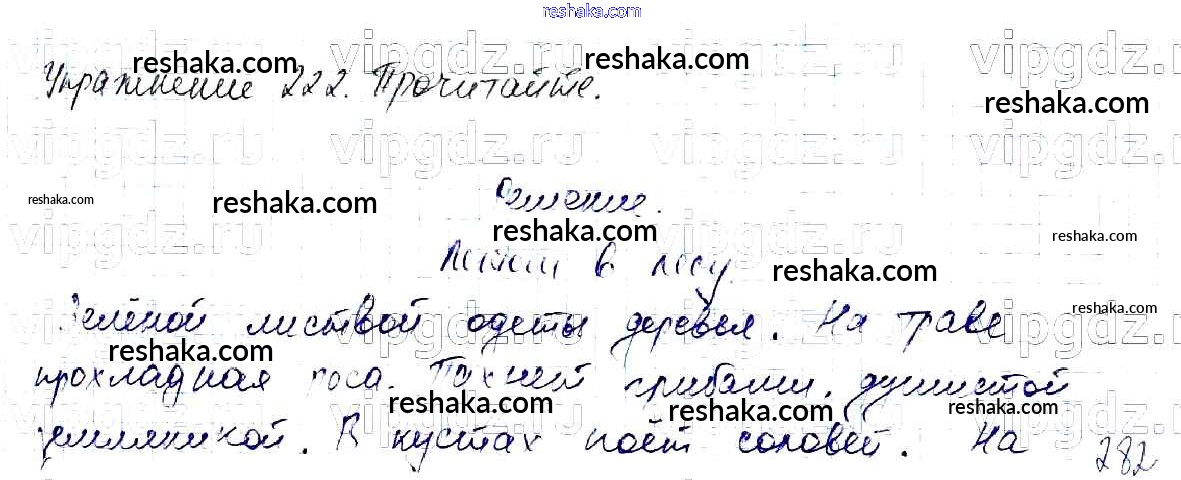 reshaka.com
vipgdz.ru vipgdz.ru vipgdz.ru vipgdz.ru
reshaka.com reshaka.com
Упражнение 222. Прочитайте.
reshaka.com
vipgdz.ru vipgdz.ru vipgdz.ru vipgdz.ru
Решение.
reshaka.com reshaka.com
vipgdz.ru vipgdz.ru vipgdz.ru vipgdz.ru
reshaka.com reshaka.com
Летом в лесу.
reshaka.com
Зелёной листвой одеты деревья. На траве
reshaka.com
vipgdz.ru vipgdz.ru vipgdz.ru vipgdz.ru
reshaka.com
прохладная роса. Пахнет грибами, душистой
vipgdz.ru vipgdz.ru vipgdz.ru vipgdz.ru
reshaka.com reshaka.com reshaka.com
земляникой. В кустах поёт соловей. На
282